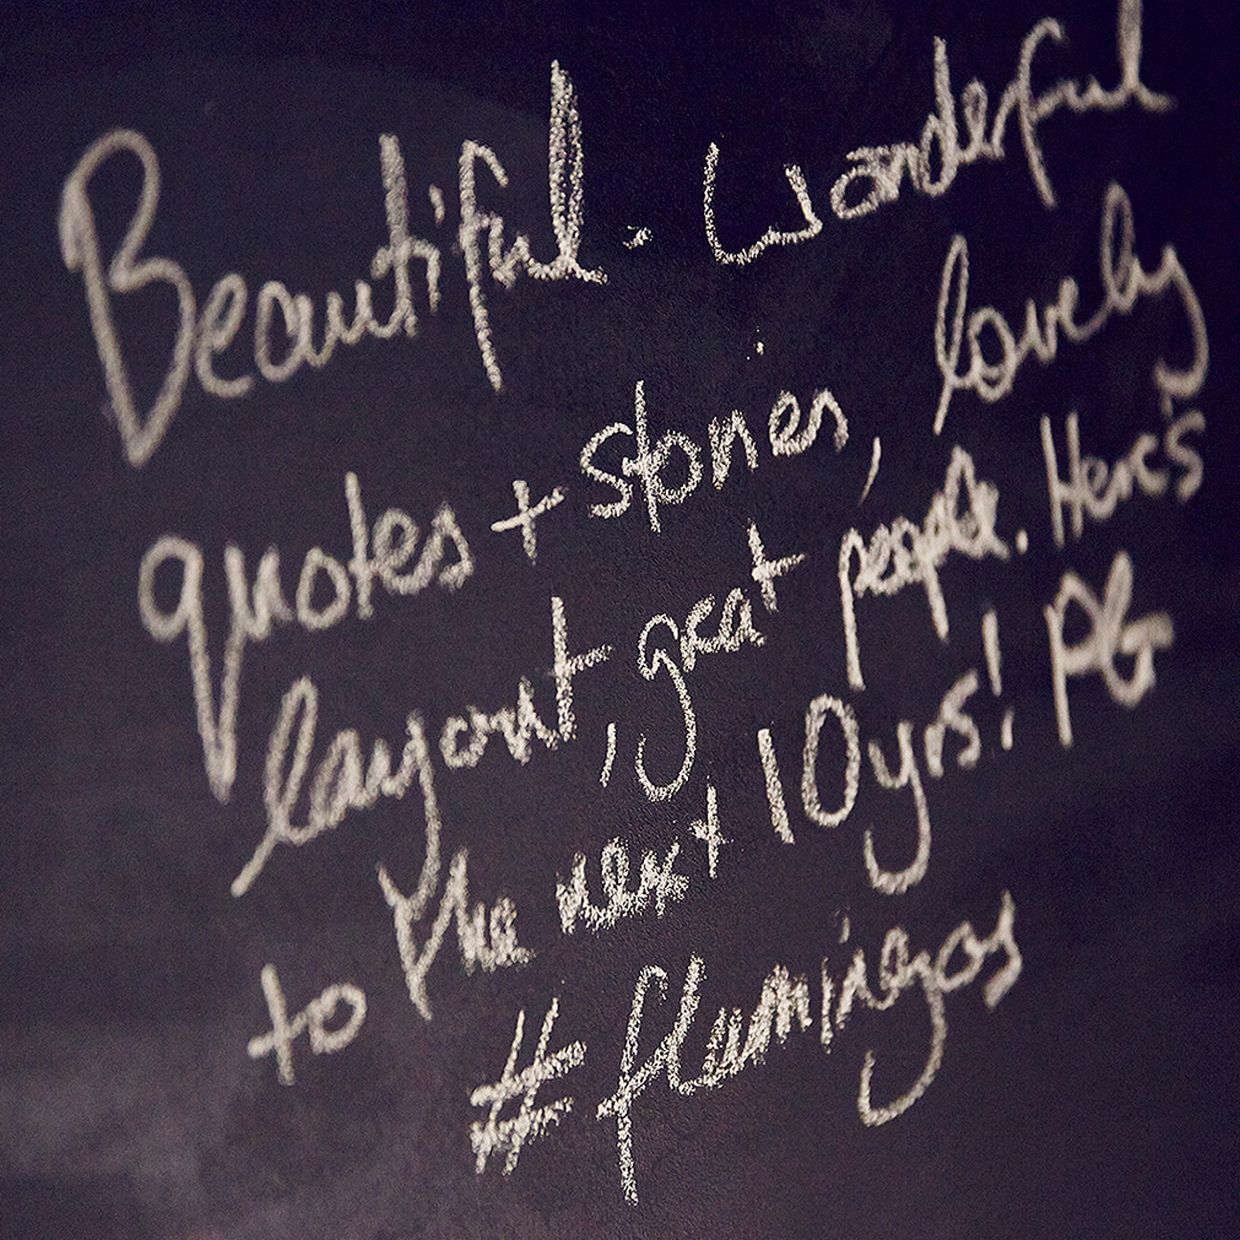 Beautiful - wonderful
quotes + stories, lovely
layout, great people. Here's
to the next 10yrs! PG
#flamingos